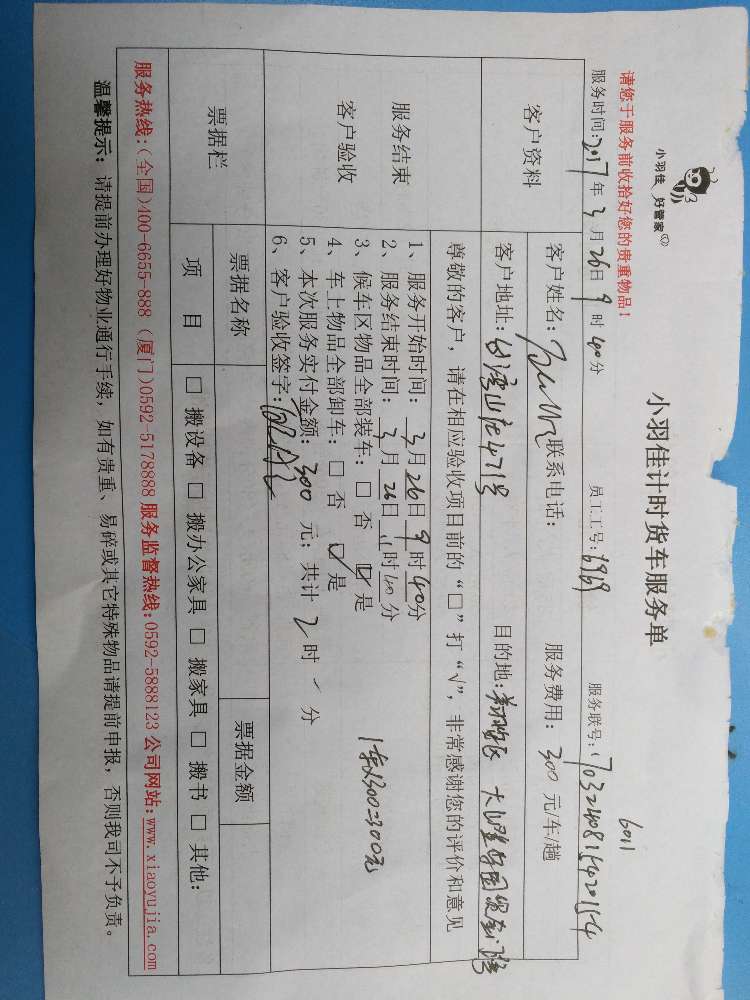 小羽佳 好管家
小羽佳计时货车服务单
请您于服务前收拾好您的贵重物品！
6011
服务时间:2017年3月26日9时40分 员工工号:6969 服务联号:
客户资料
客户姓名: 联系电话: 服务费用: 300 元/车/趟
客户地址: 台湾山庄471号 目的地:
尊敬的客户，请在相应验收项目前的“□”打“√”，非常感谢您的评价和意见
服务结束
客户验收
1、服务开始时间: 3月26日9时40分
2、服务结束时间: 3月26日11时40分
3、候车区物品全部装车: □ 否 ☑ 是
4、车上物品全部卸车: □ 否 ☑ 是
5、本次服务实付金额: 300 元; 共计 2 时 分
1车x300=300元
6、客户验收签字:
票据栏
票据名称 票据金额
项 目 □ 搬设备 □ 搬办公家具 □ 搬家具 □ 搬书 □ 其他:
服务热线:(全国)400-6655-888 (厦门)0592-5178888 服务监督热线:0592-5888123 公司网站:www.xiaoyujia.com
温馨提示: 请提前办理好物业通行手续，如有贵重、易碎或其它特殊物品请提前申报，否则我司不予负责。